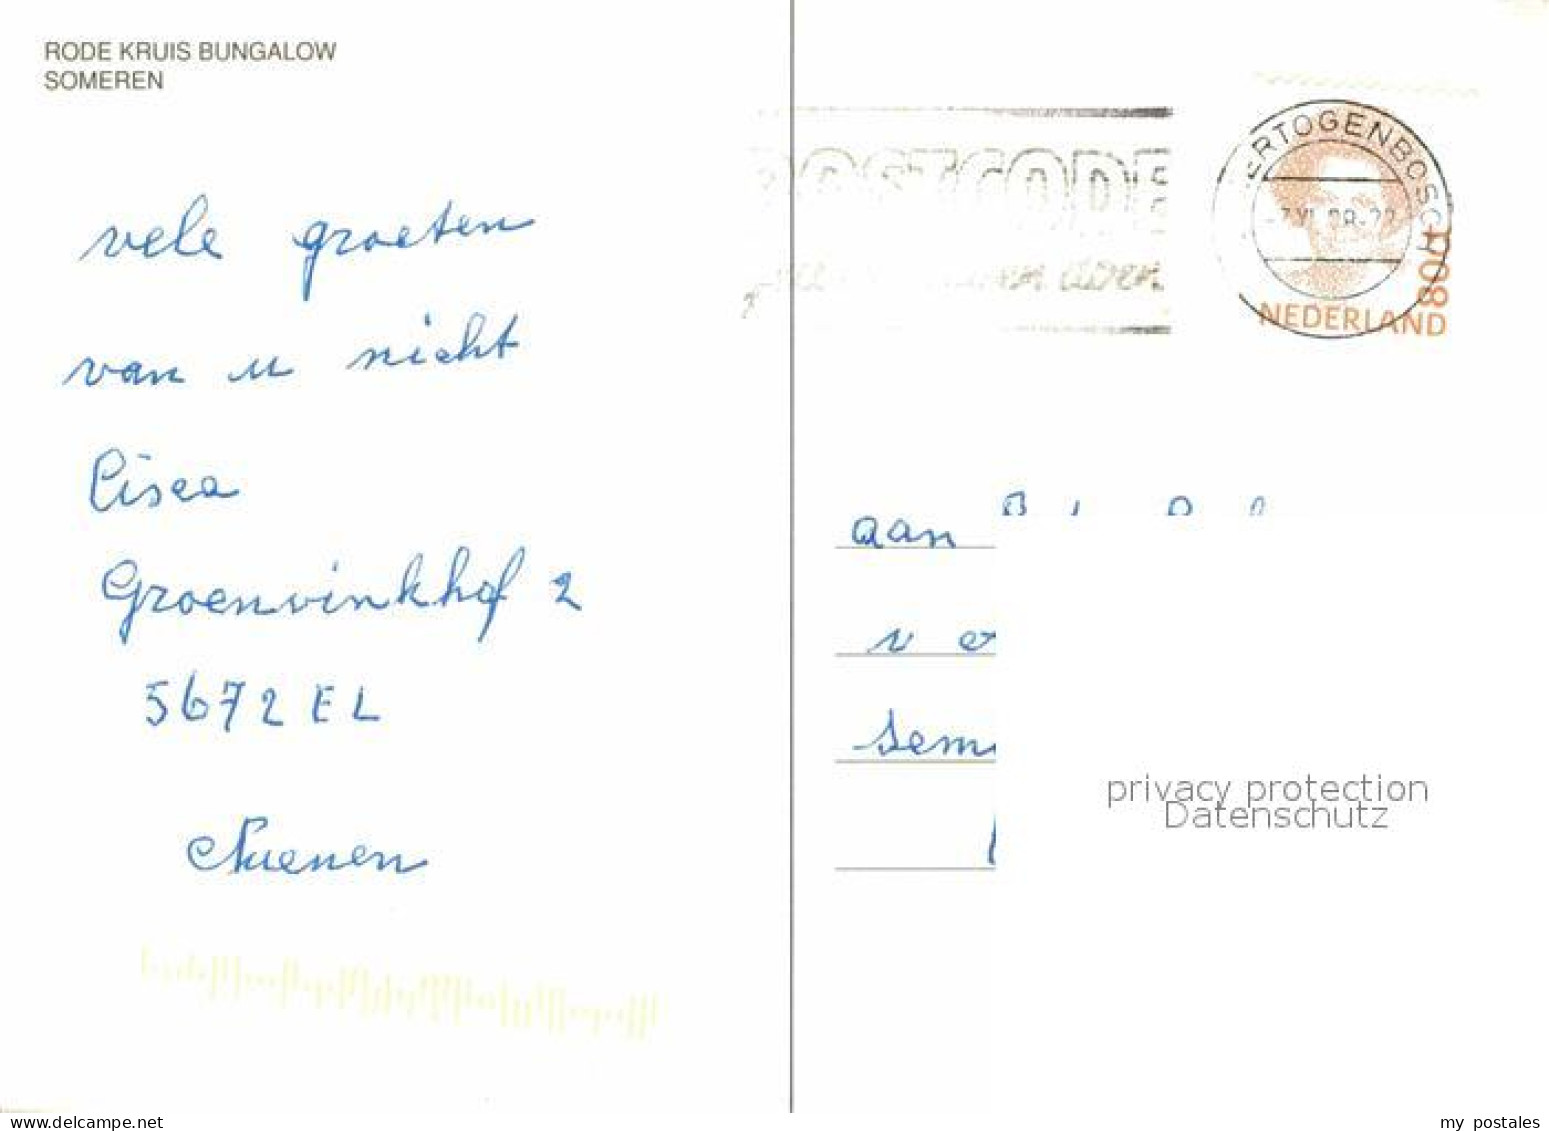 RODE KRUIS BUNGALOW
SOMEREN
vele groeten
van u nicht
Cisca
Groenvinkhof 2
5672 EL
Nuenen
POSTCODE
ERTOGENBOSCH
080
NEDERLAND
aan
sem
privacy protection
Datenschutz
my postales